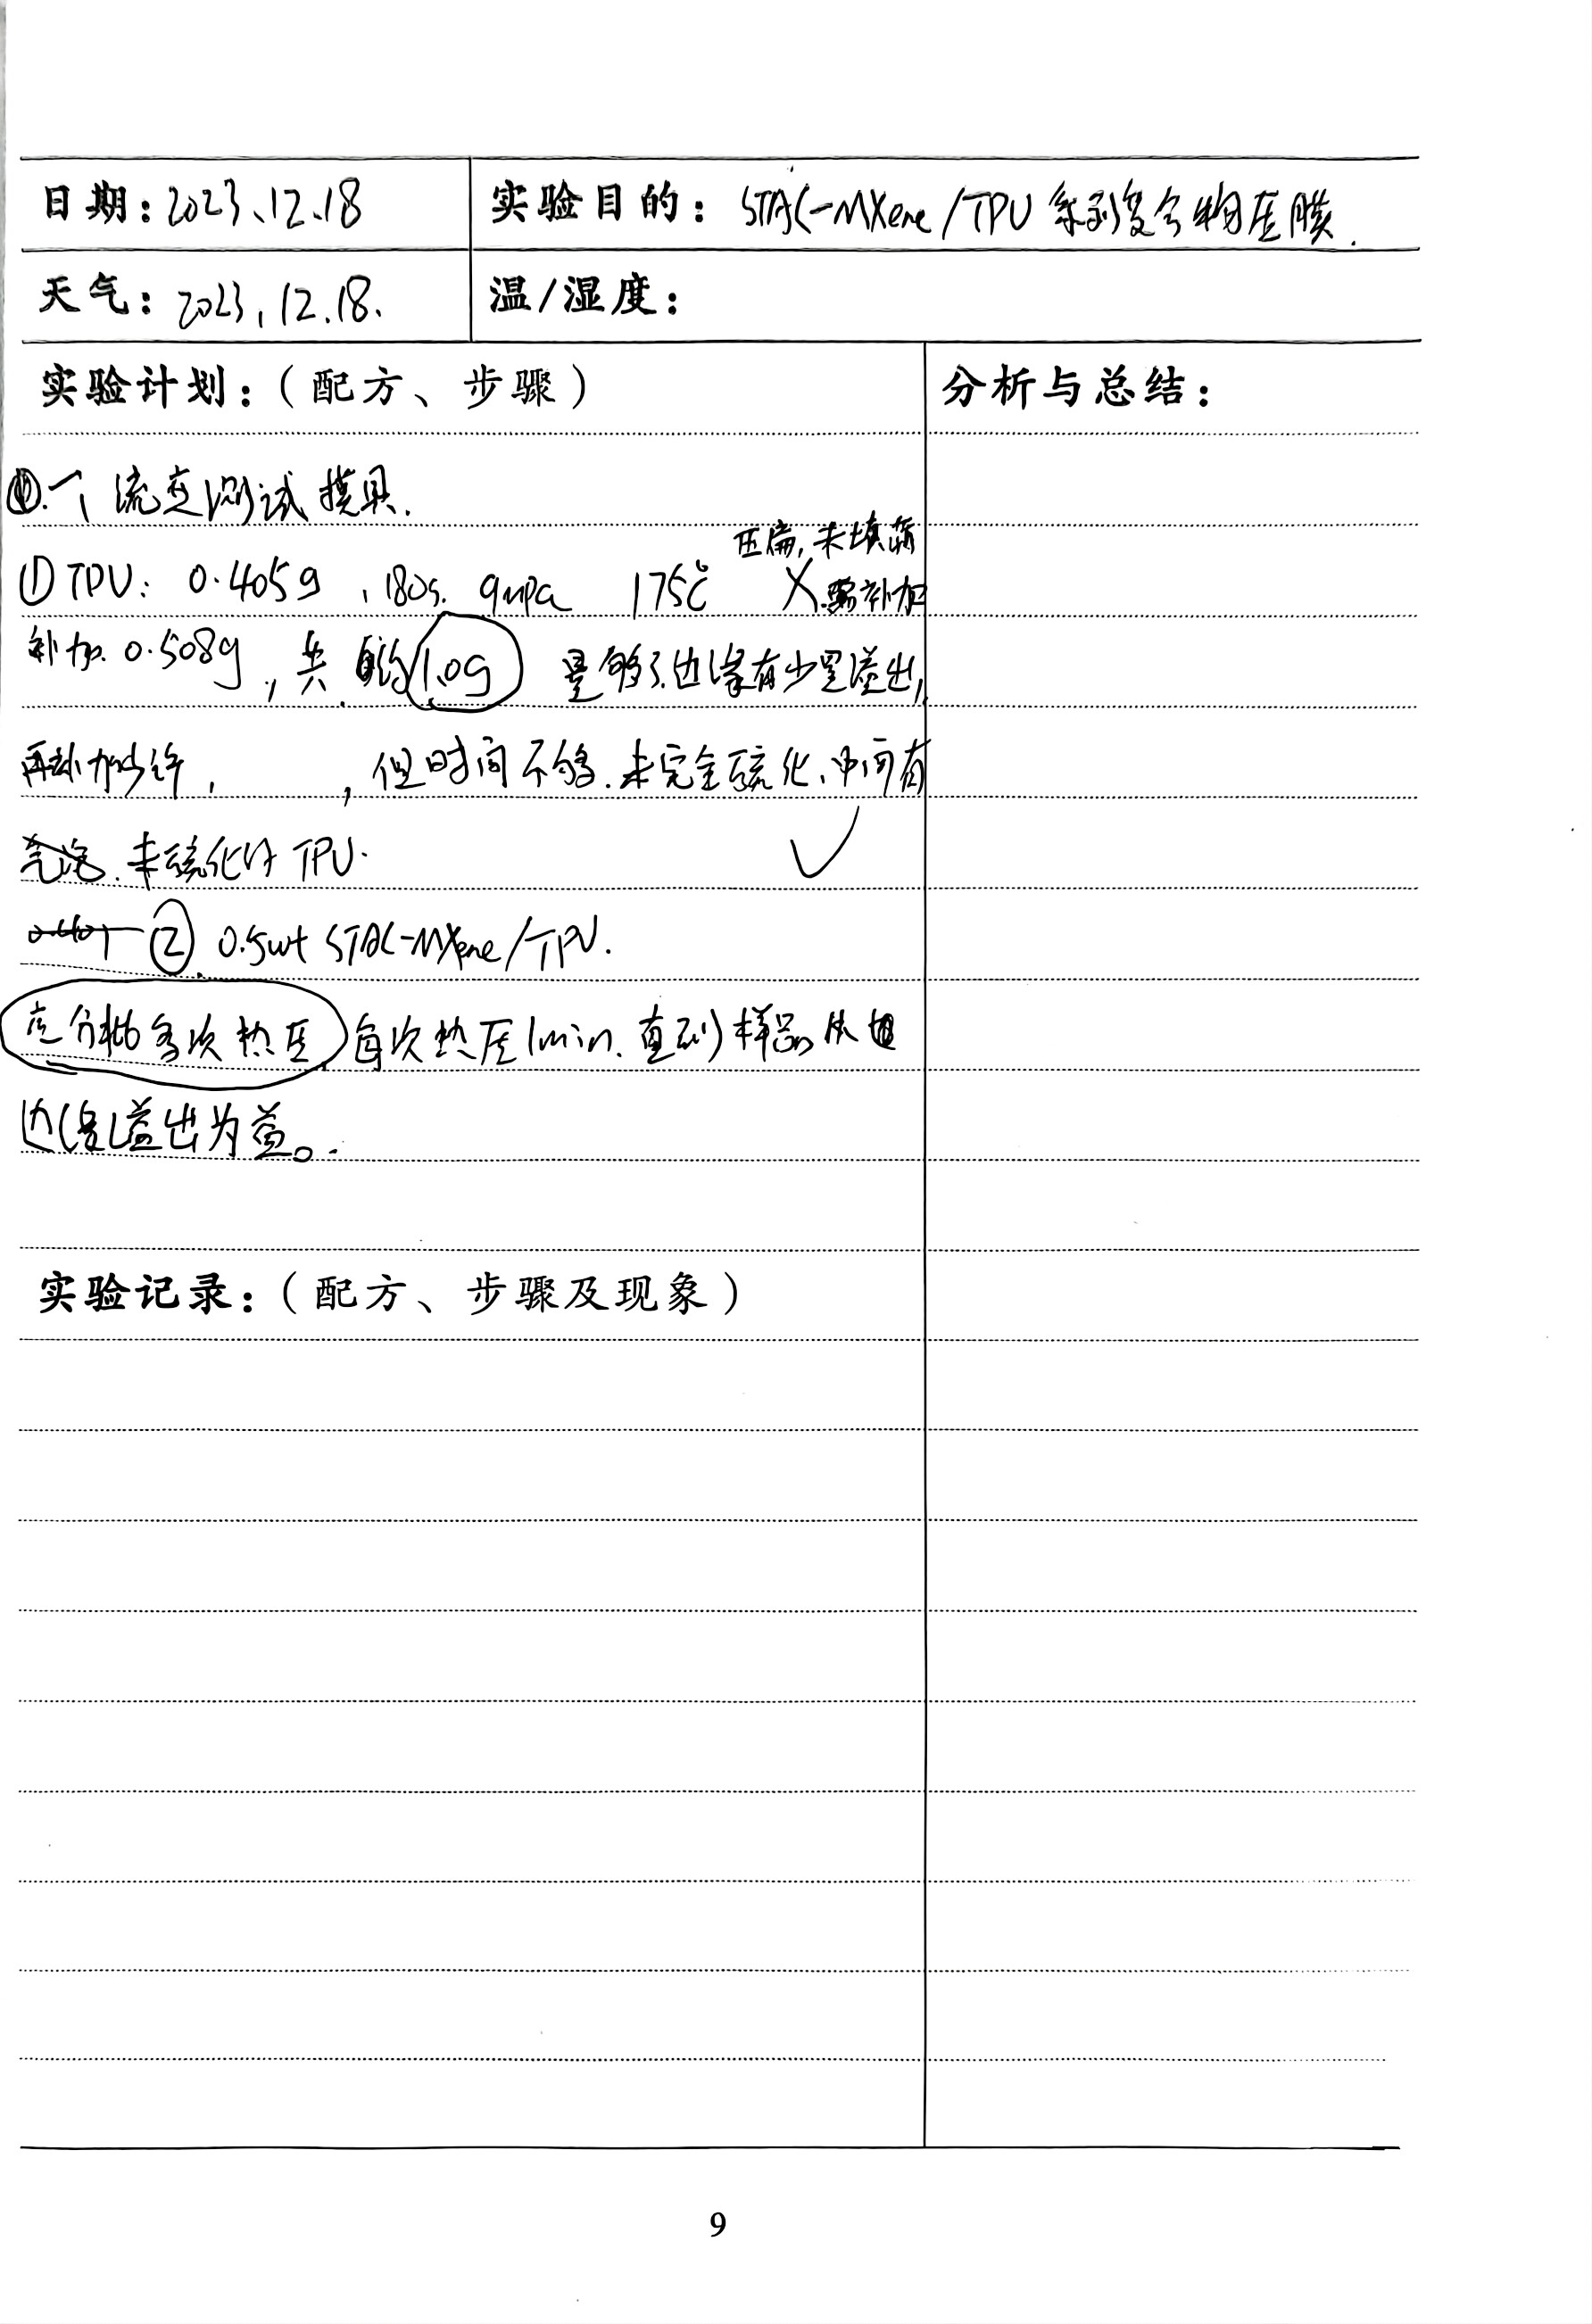 日期：2023、12、18
实验目的：STAC-MXene/TPU 系列复合物压膜.
天气：2023，12.18.
温/湿度：
实验计划：（配方、步骤）
分析与总结：
一个流变测试模具.
压扁，未填满
① TPU: 0.405g , 180s. 9mpa 175℃ X 需补加
补加 0.508g , 共 约 1.0g 量够了边缘有少量溢出,
再补加少许, , 但时间不够. 未完全硫化、中间有
气泡. 未硫化的 TPU.
② 0.5wt STAC-MXene/TPU.
应分批多次热压 每次热压1min. 直到样品从
边缘溢出为宜。
实验记录：（配方、步骤及现象）
9